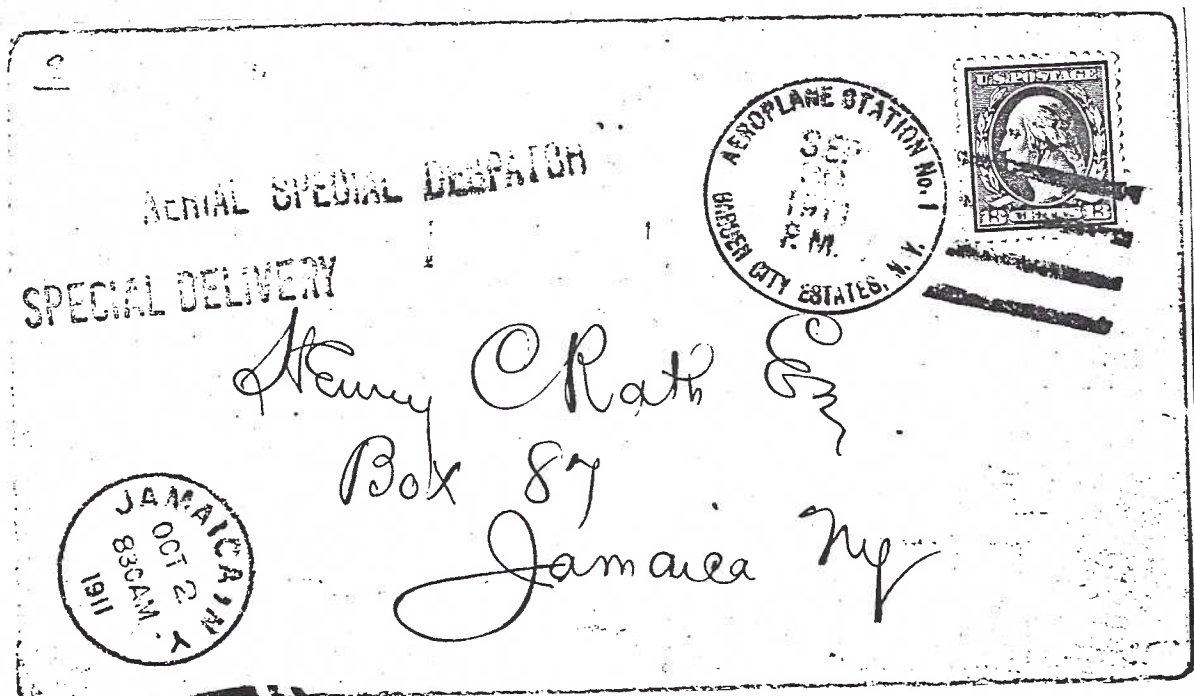 AERIAL SPECIAL DESPATCH
SPECIAL DELIVERY
AEROPLANE STATION No. 1
SEP
1911
P.M.
GARDEN CITY ESTATES, N. Y.
U.S. POSTAGE
8 8
Henry C Rath Esq
Box 87
Jamaica Ny
JAMAICA, N.Y.
OCT 2
830AM.
1911